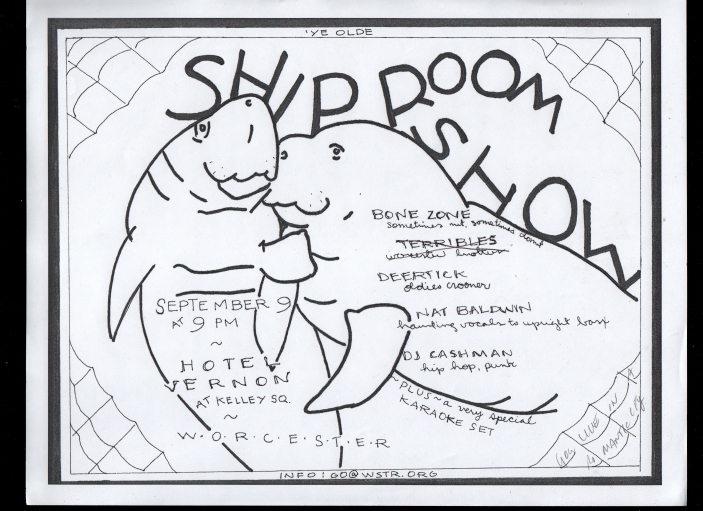 'YE OLDE
SHIP ROOM
SHOW
BONE ZONE
sometimes nut, sometimes donut
TERRIBLES
worcester brothers
DEERTICK
oldies crooner
NAT BALDWIN
haunting vocals to upright bass
DJ CASHMAN
hip hop, punk
~PLUS~ a very special
KARAOKE SET
SEPTEMBER 9
AT 9 PM
~
HOTEL
VERNON
AT KELLEY SQ.
~
W·O·R·C·E·S·T·E·R
LIVE IN A
ROMANTIC CITY
INFO: GO@WSTR.ORG